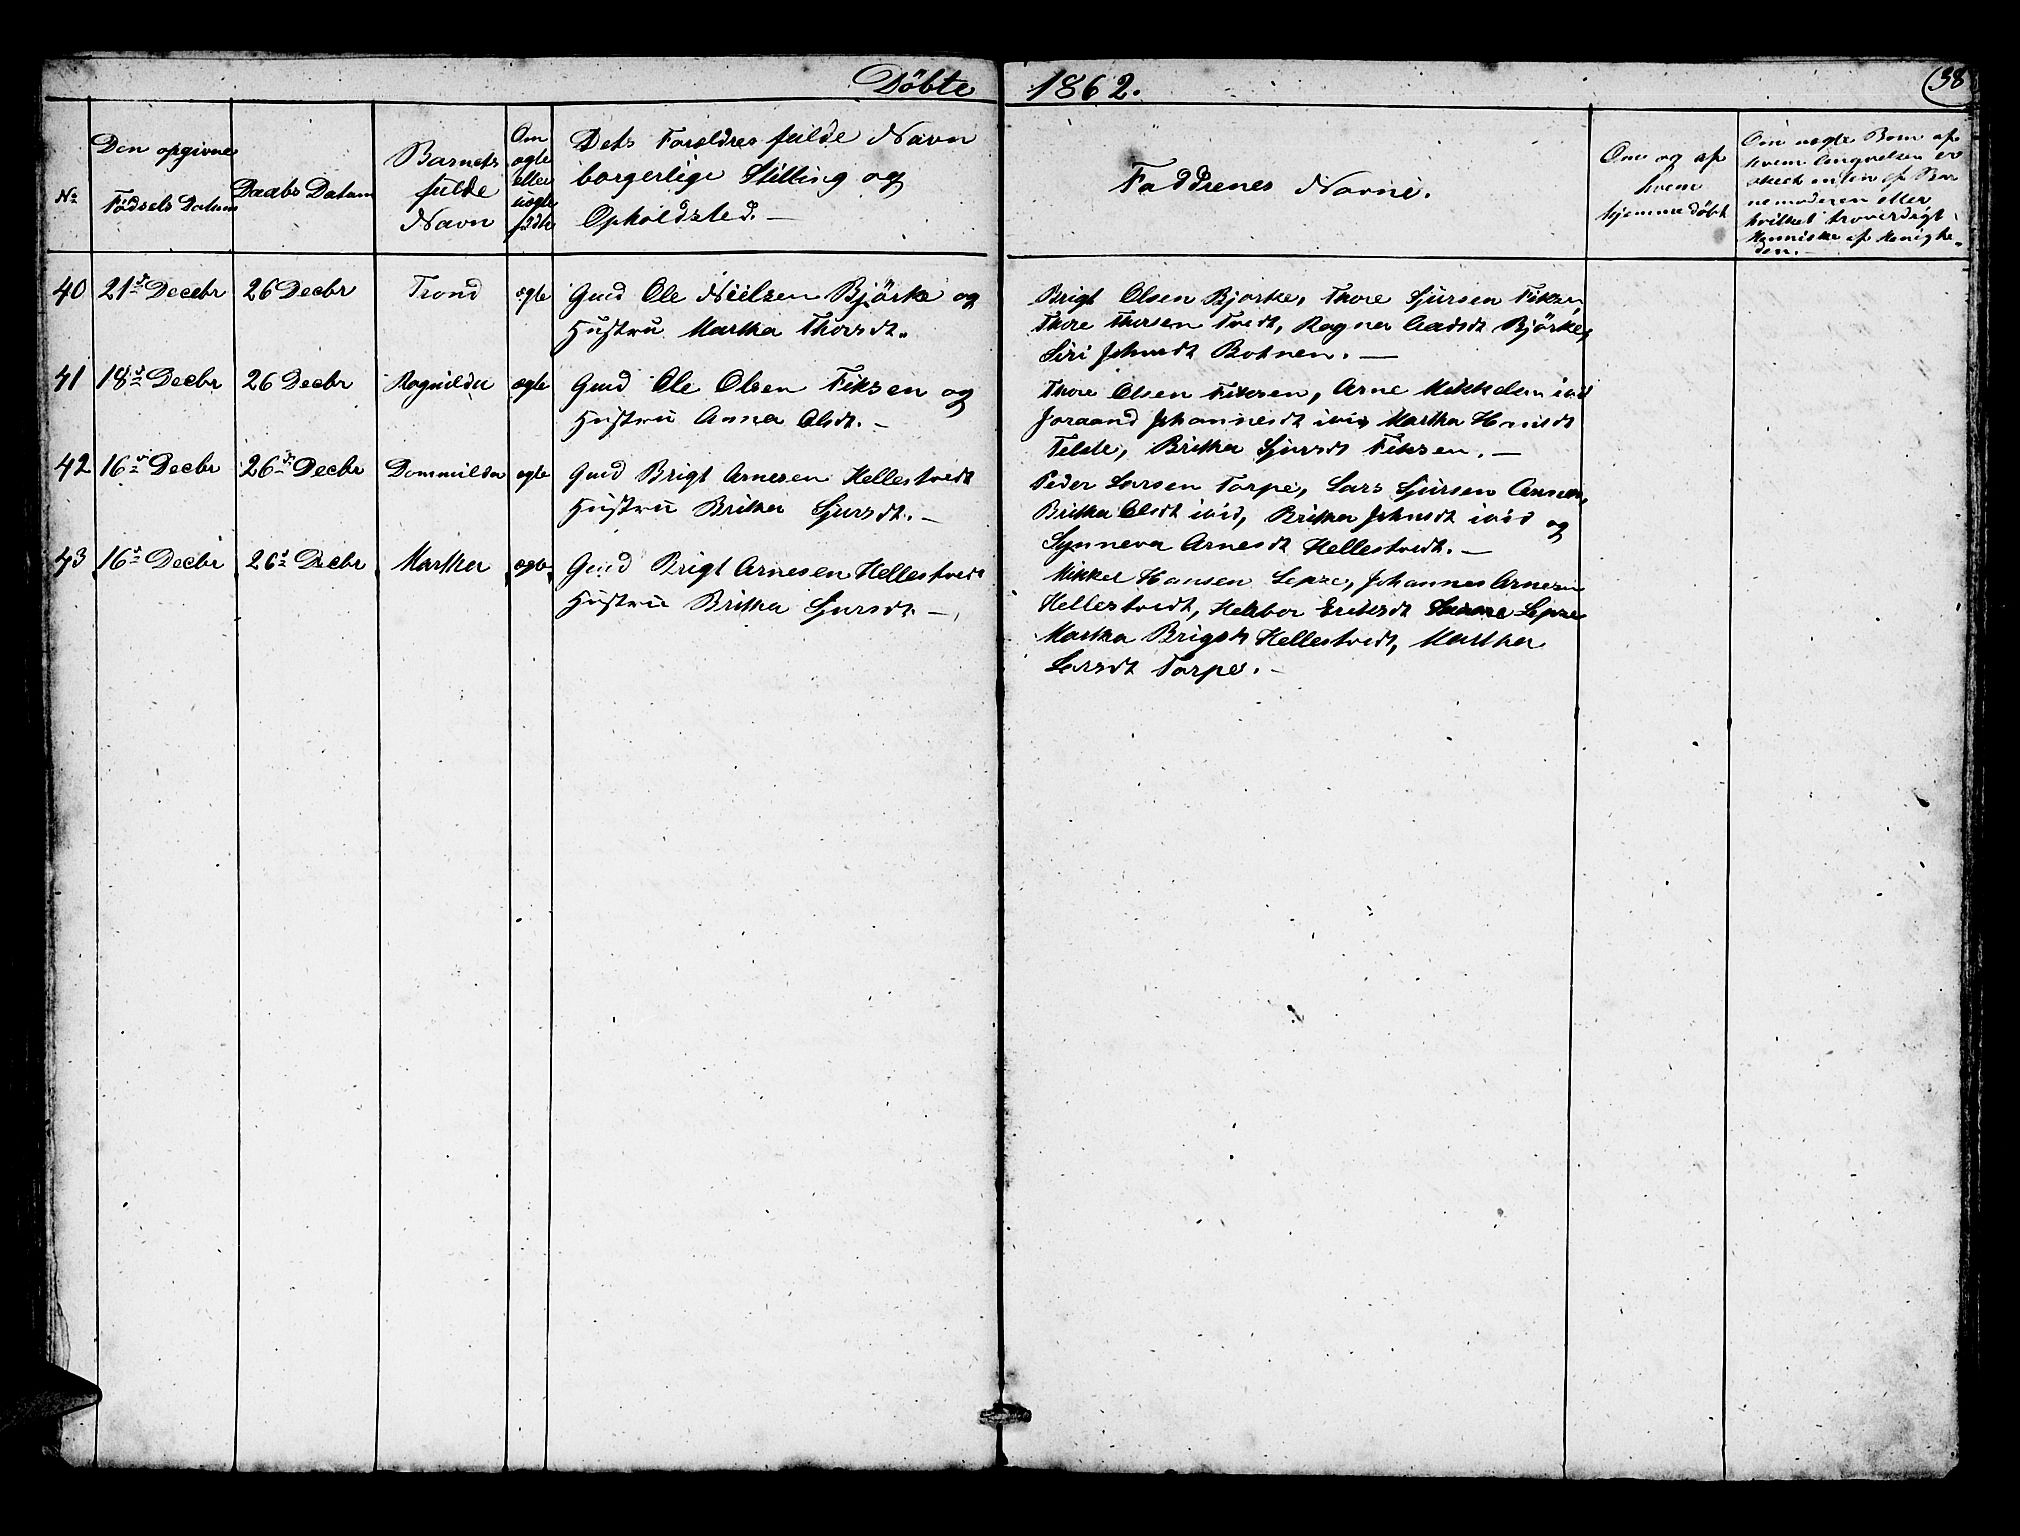 Döbte 1862.
38
No
Den opgivne
Födsels Datum
Daabs Datum
Barnets
fulde
Navn
Om
ægte
eller
uægte
födte
Dets Forældres fulde Navn
borgerlige Stilling og
Opholdsted. —
Faddrenes Navne.
Om og af
hvem
hjemmedöbt
Om uægte Born af
hvem Angivelsen er
skeet enten af Bar
nemoderen eller
hvilket troverdigt
Menniske af Menighe-
den. —
40 21de Decebr 26 Decbr Trond ægte Gmd Ole Nielsen Björke og
Hustru Martha Thorsdt.
Brigt Olsen Bjorke, Thore Sjursen Fiksen
Thore Thorsen Tvedt, Ragna Aadsdt Björke,
Siri Johnsdt Botnen. —
41 18de Decbr 26 Decbr Rognilda ægte Gmd Ole Olsen Fiksen og
Hustru Anna Olsdt. —
Thore Olsen Fiksen, Arne Mikkelsen ivid
Joraand Johannesdt ivid Martha
Telde, Britha Sjursdt Fiksen. —
42 16de Decbr 26de Decbr Dommilda ægte Gmd Brigt Arnesen Hellestvedt
Hustru Britha Sjursdt. —
Peder Larsen Torpe, Lars Sjursen
Britha Olsdt ivid, Britha Johnsdt ivid og
Synneva Arnesdt Hellestvedt. —
43 16de Decbr 26de Decbr Martha ægte Gmd Brigt Arnesen Hellestvedt
Hustru Britha Sjursdt. —
Mikkel Hansen Lepse, Johannes Arnesen
Hellestvedt, Herbor Eriksdt Lepse
Martha Brigtsdt Hellestvedt, Martha
Larsdt Torpe. —